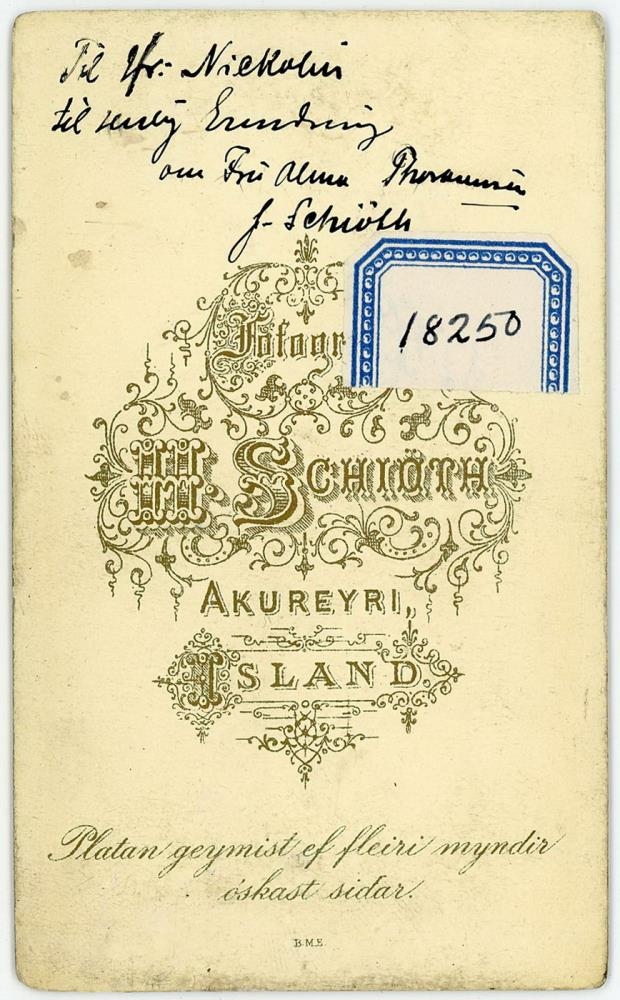 Til Hr: Nickolin
til venlig Erindring
om Fru Alma Thorarensen
J. Schiöth
18250
Fotogr
H. SCHIÖTH
AKUREYRI,
ISLAND
Platan geymist ef fleiri myndir
óskast sidar.
B.M.E.